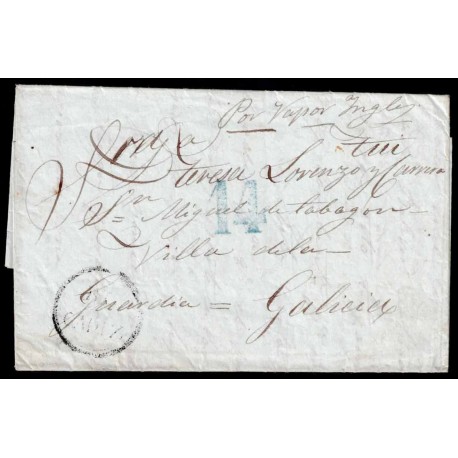 Por Vapor Ingles
Tui
Teresa Lorenzo y Carrera
14
Sn Miguel de tabagon
Villa dela
Guardia = Galicia